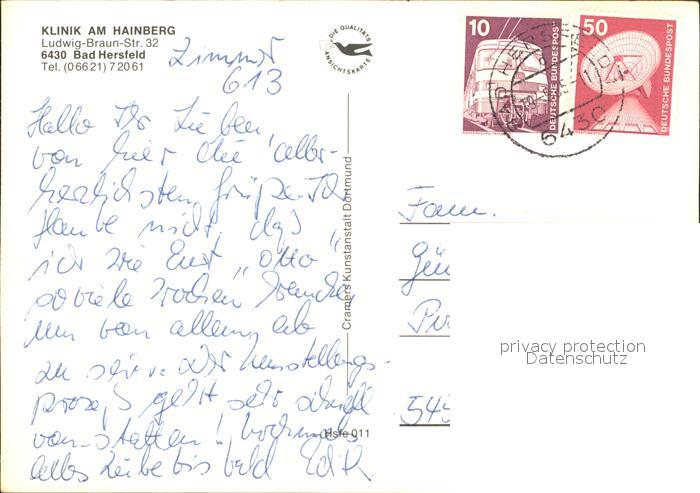 KLINIK AM HAINBERG
Ludwig-Braun-Str. 32
6430 Bad Hersfeld
Tel. (0 66 21) 7 20 61
Zimmer
613
DIE QUALITÄTS
ANSICHTSKARTE
10
DEUTSCHE BUNDESPOST
50
DEUTSCHE BUNDESPOST
6430
Hallo Ihr Lieben,
von hier die aller-
herzlichsten Grüße. Ich
glaube nicht, daß
ich wie Euer "Otto"
so viele Wochen brauche,
um von allem ab
zu sein. Der Umstellungs-
prozeß geht sehr schnell
von-statten! Nochmals
alles Liebe bis bald Edith
Cramers Kunstanstalt Dortmund
Hsfe 011
Fam.
Gün
545
privacy protection
Datenschutz